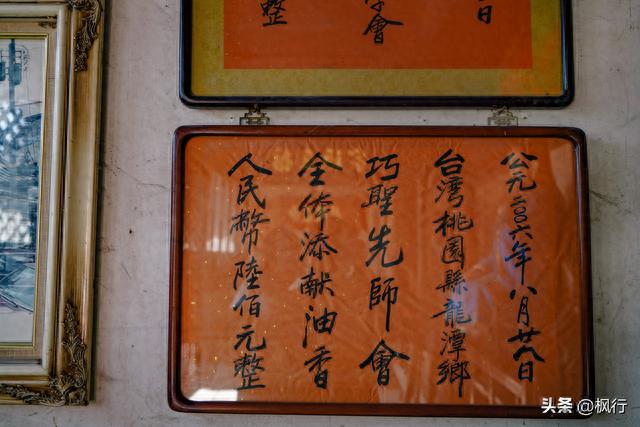 日
會
整
公元二〇〇六年八月廿八日
台湾桃園縣龍潭鄉
巧聖先師會
全体添献油香
人民幣陸佰元整
头条 @枫行